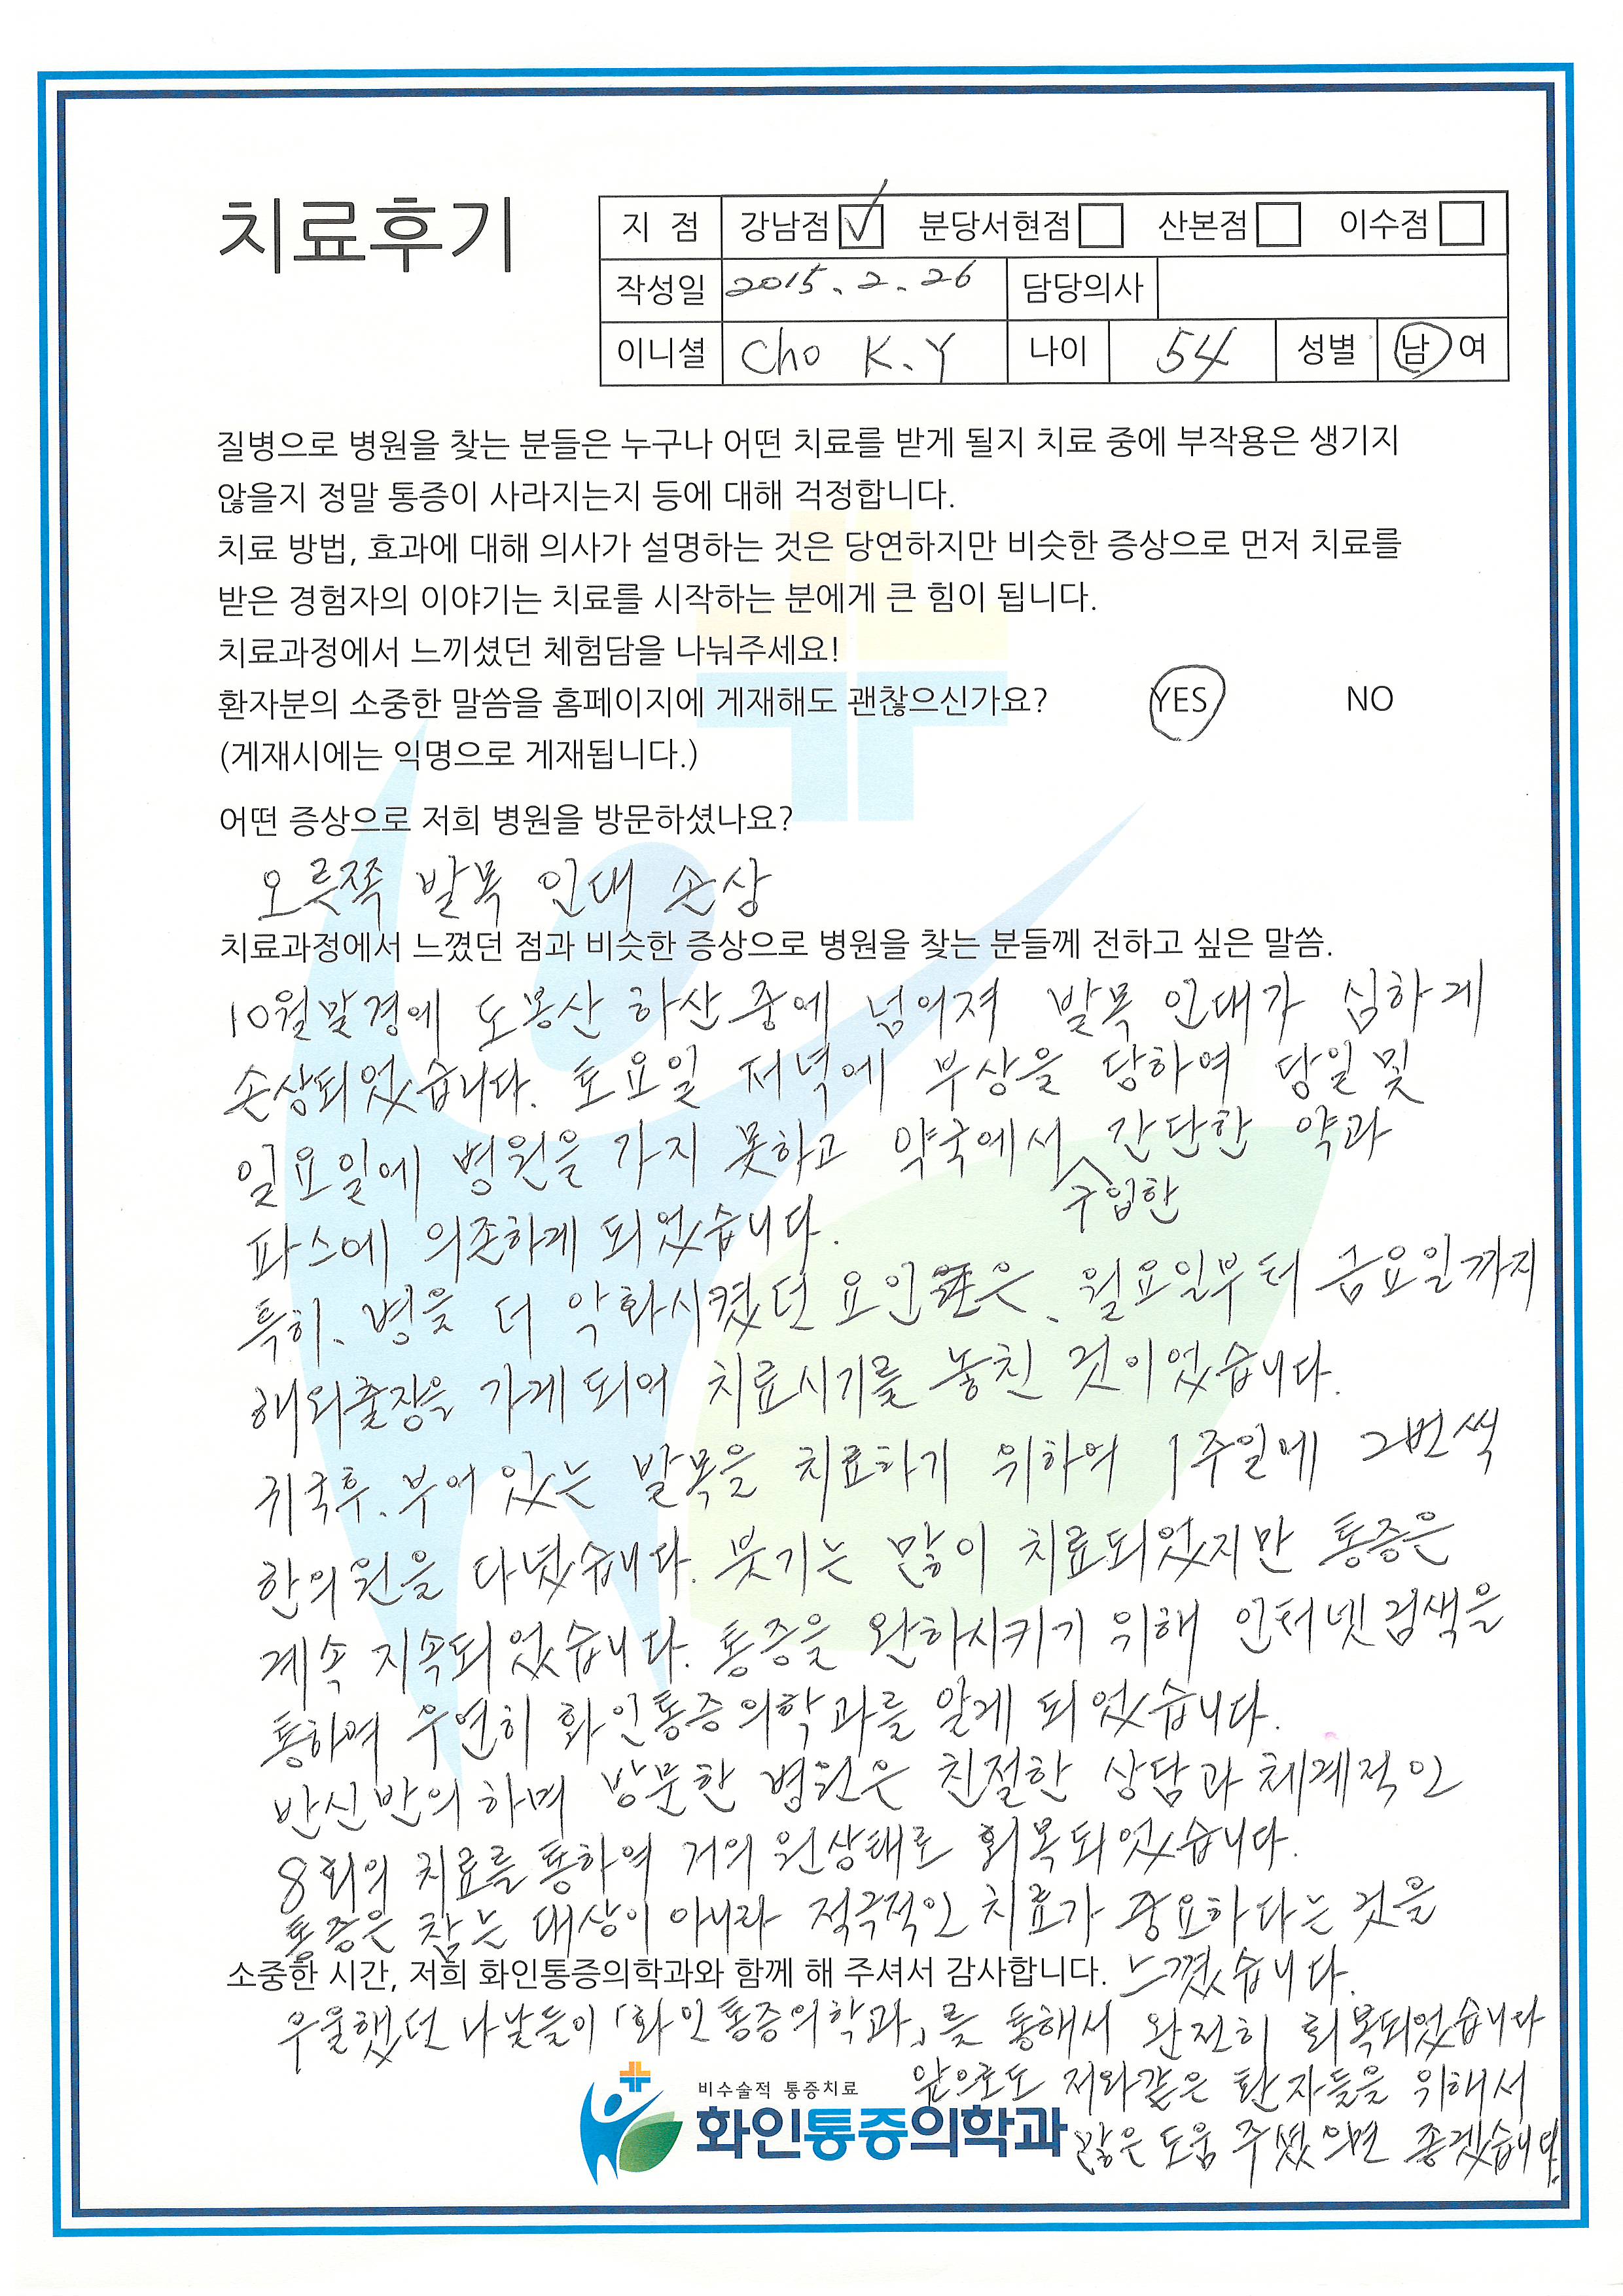 치료후기
지 점 강남점 ☑ 분당서현점 □ 산본점 □ 이수점 □
작성일 2015. 2. 26 담당의사
이니셜 Cho K.Y 나이 54 성별 남 여
질병으로 병원을 찾는 분들은 누구나 어떤 치료를 받게 될지 치료 중에 부작용은 생기지
않을지 정말 통증이 사라지는지 등에 대해 걱정합니다.
치료 방법, 효과에 대해 의사가 설명하는 것은 당연하지만 비슷한 증상으로 먼저 치료를
받은 경험자의 이야기는 치료를 시작하는 분에게 큰 힘이 됩니다.
치료과정에서 느끼셨던 체험담을 나눠주세요!
환자분의 소중한 말씀을 홈페이지에 게재해도 괜찮으신가요? YES NO
(게재시에는 익명으로 게재됩니다.)
어떤 증상으로 저희 병원을 방문하셨나요?
오른쪽 발목 인대 손상
치료과정에서 느꼈던 점과 비슷한 증상으로 병원을 찾는 분들께 전하고 싶은 말씀.
10월말경에 도봉산 하산 중에 넘어져 발목 인대가 심하게
손상되었습니다. 토요일 저녁에 부상을 당하여 당일 및
일요일에 병원을 가지 못하고 약국에서 간단한 약과
구입한
파스에 의존하게 되었습니다.
특히, 병을 더 악화시켰던 요인은, 월요일부터 금요일까지
해외출장을 가게 되어 치료시기를 놓친 것이었습니다.
귀국후, 부어 있는 발목을 치료하기 위하여 1주일에 2번씩
한의원을 다녔습니다. 붓기는 많이 치료되었지만 통증은
계속 지속되었습니다. 통증을 완하시키기 위해 인터넷 검색을
통하여 우연히 화인통증의학과를 알게 되었습니다.
반신반의 하며 방문한 병원은 친절한 상담과 체계적인
8회의 치료를 통하여 거의 원상태로 회복되었습니다.
통증은 참는 대상이 아니라 적극적인 치료가 중요하다는 것을
소중한 시간, 저희 화인통증의학과와 함께 해 주셔서 감사합니다. 느꼈습니다.
우울했던 나날들이 「화인통증의학과」를 통해서 완전히 회복되었습니다
앞으로도 저와같은 환자들을 위해서
비수술적 통증치료
화인통증의학과 많은 도움 주셨으면 좋겠습니다.